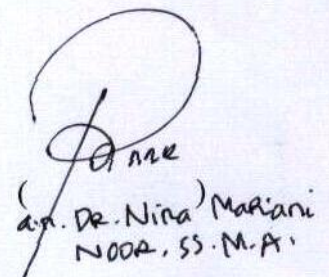 (a.n. DR. Nina) Mariani
NOOR. SS. M.A.